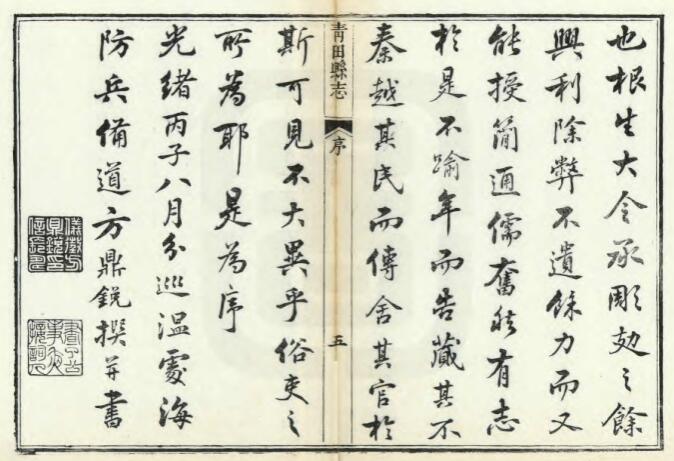 也根生大令承彫之餘
興利除弊不遺餘力而又
能授簡通儒奮然有志
於是不踰年而告蕆其不
秦越其民而傳舍其官於
青田縣志
序
五
斯可見不大異乎俗吏之
所為耶是為序
光緒丙子八月分巡溫處海
防兵備道方鼎銳撰并書
儀徵方
鼎銳印
晝了公
事夜
接詞人